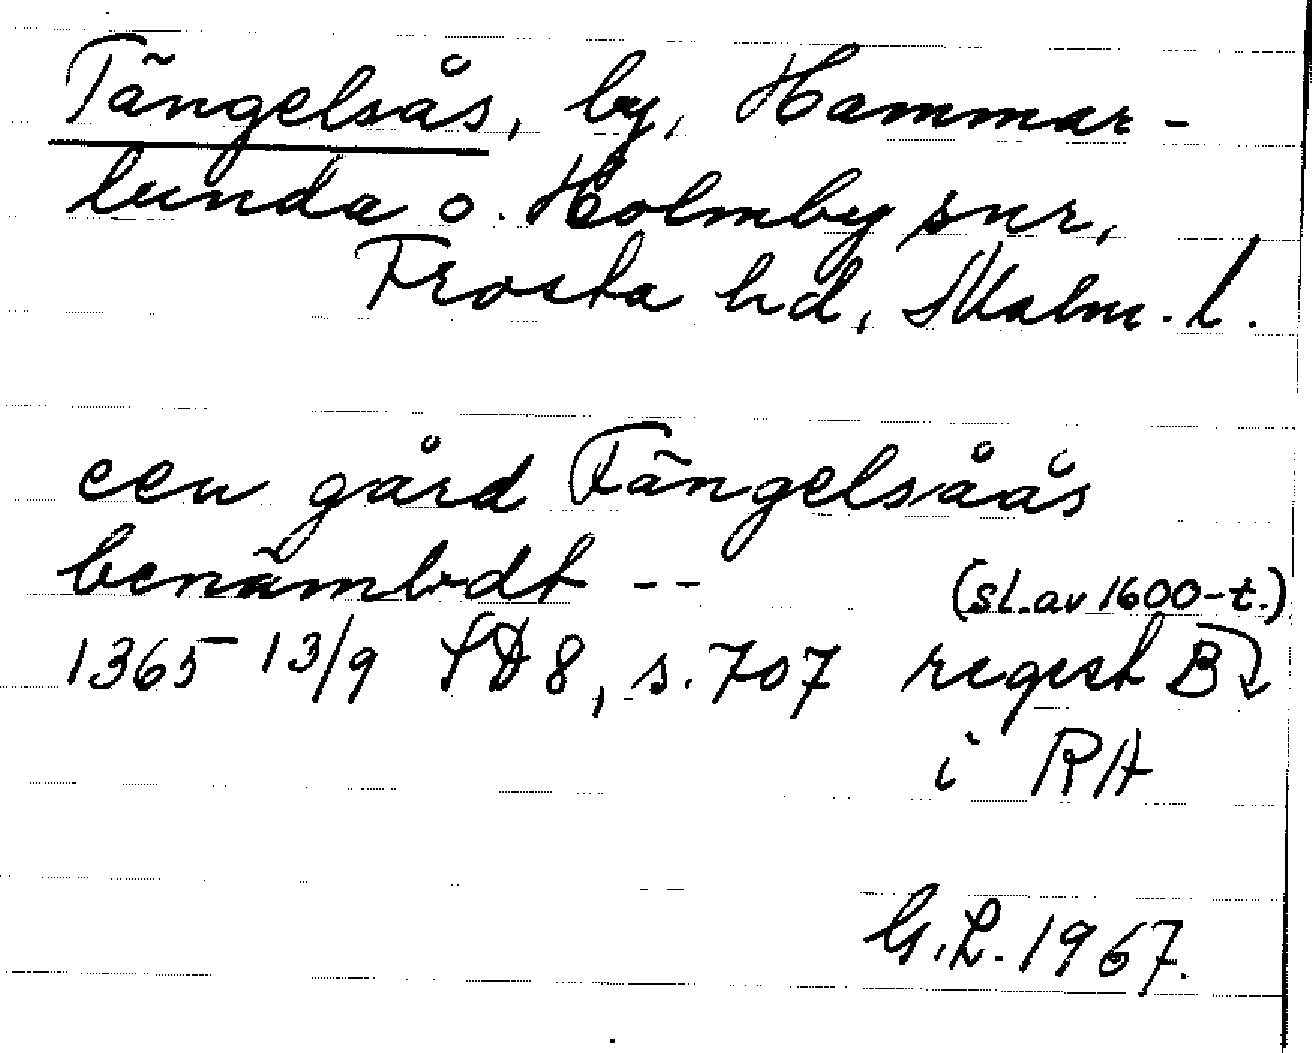 Tängelsås, by, Hammar-
lunda o. Holmby snr,
Frosta hd, Malm. l.
een gård Tängelsåås
benämbdt --
(sl. av 1600-t.)
1365 13/9 SD 8, s. 707 regest B
i RA
G. L. 1967.